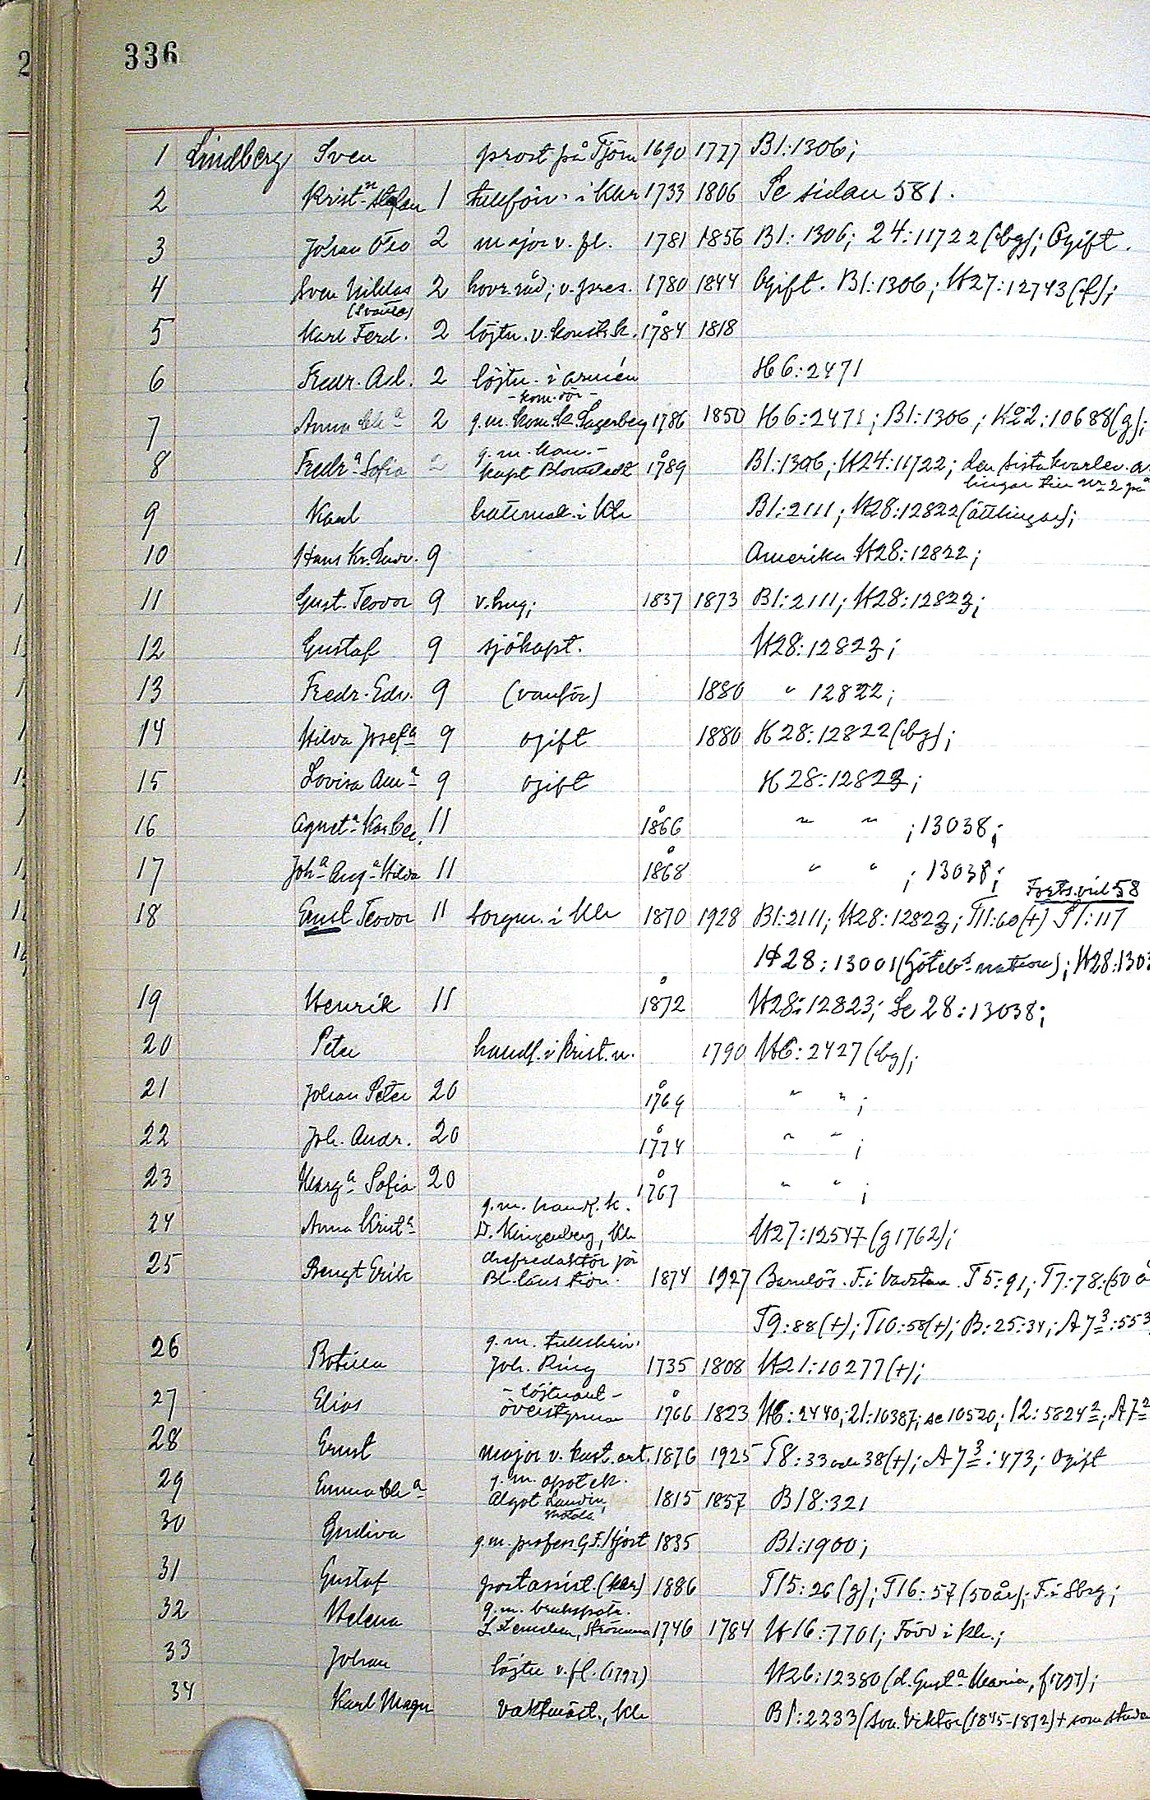 336
1 Lindberg Sven prost på Tjörn 1690 1777 Bl:1306;
2 Krist.n Stefan 1 tullförv. i Khr 1733 1806 Se sidan 581.
3 Johan Otto 2 major v. fl. 1781 1856 Bl:1306; 24:11722 (bg); Ogift.
4 Sven Niklas 2 hovr.råd; v.pres. 1780 1844 Ogift. Bl:1306; H27:12743(f);
5 Karl Ferd. 2 löjtn. v. konst.k. å 1784 1818
6 Fredr. Ad. 2 löjtn. i armén H6:2471
7 Anna 2 g.m. kom.k. Lagerberg 1786 1850 H6:2471; Bl:1306; H22:10688(g);
8 Fredr.a Sofia 2 g.m. kapt Blomstedt å 1789 Bl:1306; H24:11722; den sista kvarlev. a
9 Karl Bl:2111; H28:12822 (ättlingar);
10 Hans Kr. Ludv. 9 Amerika H28:12822;
11 Gust. Teovor 9 v.hug; 1837 1873 Bl:2111; H28:12823;
12 Gustaf 9 sjökapt. H28:12823;
13 Fredr. Edv. 9 (vanför) 1880 " 12822;
14 Hilda Josef.a 9 ogift 1880 H28:12822 (bg);
15 Lovisa Am.a 9 ogift H28:12823;
16 Agust.a 11 å 1866 " " ; 13038;
17 Joh.a Aug.a Hilda 11 å 1868 " " ; 13038;
Forts. vid 58
18 Ernst Teovor 11 borgm. i Kh 1870 1928 Bl:2111; H28:12823; T11:60(+) S1:117
H28:13001 (Göteb.s nation); H28:1303
19 Henrik 11 å 1872 H28:12823; Se 28:13038;
20 Peter handl. i Krist.n. 1790 H6:2427 (bg);
21 Johan Peter 20 å 1769 " " ;
22 Joh. Andr. 20 å 1774 " " ;
23 Marg.a Sofia 20 å 1767 " " ;
24 Anna Krist.a g.m. handl. k. D. Klingenberg, Kh H27:12547 (g 1762);
25 Bengt Erik chefredaktör för Bl. läns tidn. 1874 1927 Barnlös. F. i Vadstena. T5:91; T7:78 (50 å
T9:88(+); T10:58(+); B:25:34; A73:553
26 Botilla g.m. tullskriv. Joh. Ring 1735 1808 H21:10277(+);
27 Elias -löjtnant- överstyrman å 1766 1823 H6:2440; 21:10387; se 10520; 12:58242; A72
28 Ernst major v. kust.art. 1876 1925 T8:33 och 38(+); A73:473; Ogift
29 Emma g.m. apotek. Algot Lundin, Motala 1815 1857 B18:321
30 Gudiva g.m. profess. G.F. Hjort 1835 Bl:1900;
31 Gustaf postassist. (Khr) 1886 T15:26 (g); T16:57 (50 år); F. i Sbrg;
32 Helena g.m. brukspatr. Strömma 1746 1784 H16:7701; Född i Kh.;
33 Johan löjtn v. fl. (1797) H26:12380 (d. Gust.a Maria, f 1797);
34 Karl Magn vaktmäst., Kh Bl:2233 (son Viktor (1845-1872) + som stude